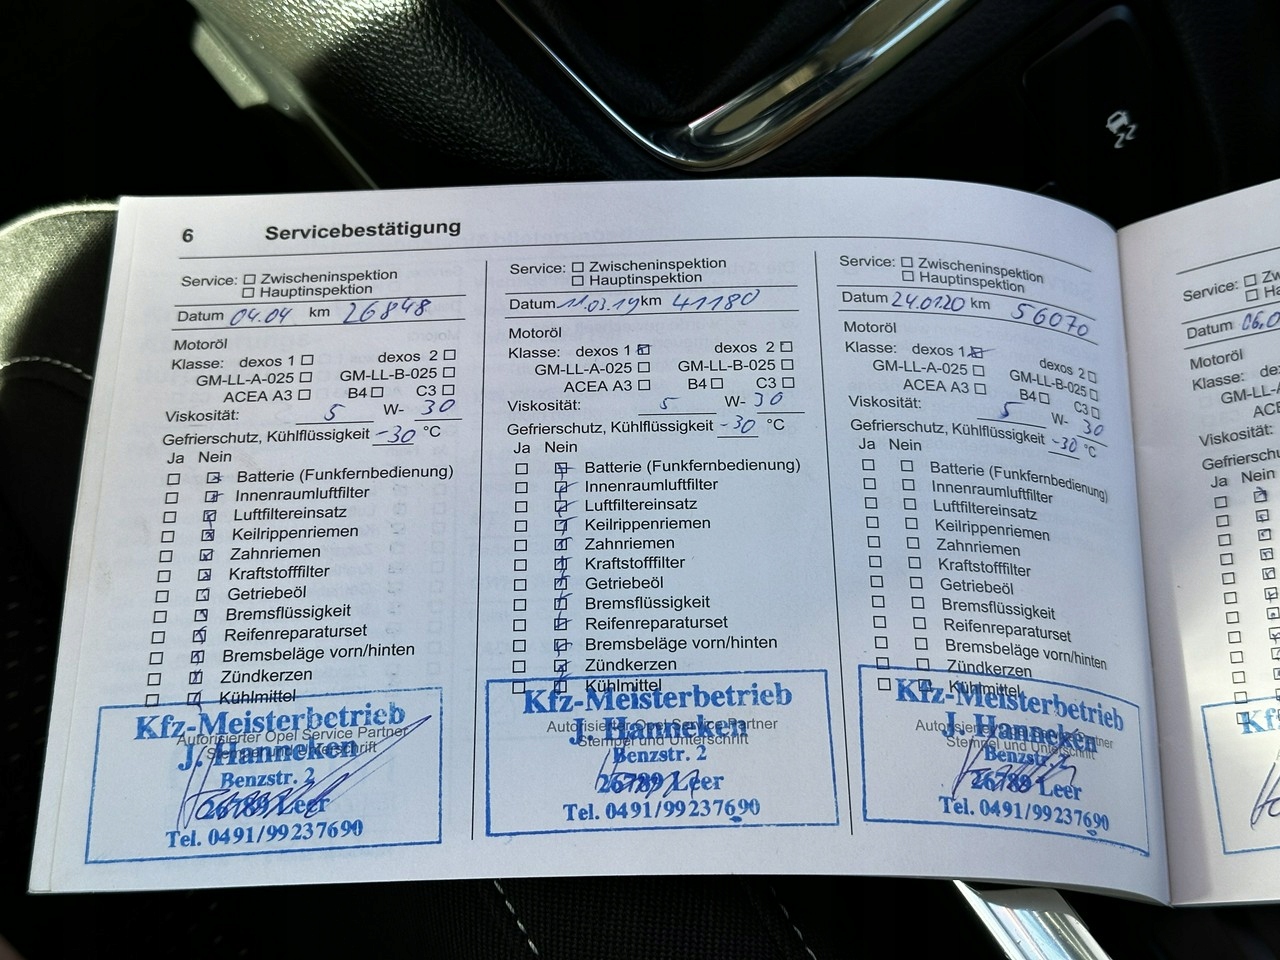 6 Servicebestätigung
Service: Zwischeninspektion
Hauptinspektion
Datum 04.04 km 26848
Motoröl
Klasse: dexos 1 dexos 2
GM-LL-A-025 GM-LL-B-025
ACEA A3 B4 C3
Viskosität: 5 W- 30
Gefrierschutz, Kühlflüssigkeit -30 °C
Ja Nein
Batterie (Funkfernbedienung)
Innenraumluftfilter
Luftfiltereinsatz
Keilrippenriemen
Zahnriemen
Kraftstofffilter
Getriebeöl
Bremsflüssigkeit
Reifenreparaturset
Bremsbeläge vorn/hinten
Zündkerzen
Kühlmittel
Kfz-Meisterbetrieb
Autorisierter Opel Service Partner
J. Hanneken
Stempel und Unterschrift
Benzstr. 2
26789 Leer
Tel. 0491/99237690
Service: Zwischeninspektion
Hauptinspektion
Datum 11.03.19 km 41180
Motoröl
Klasse: dexos 1 dexos 2
GM-LL-A-025 GM-LL-B-025
ACEA A3 B4 C3
Viskosität: 5 W- 30
Gefrierschutz, Kühlflüssigkeit -30 °C
Ja Nein
Batterie (Funkfernbedienung)
Innenraumluftfilter
Luftfiltereinsatz
Keilrippenriemen
Zahnriemen
Kraftstofffilter
Getriebeöl
Bremsflüssigkeit
Reifenreparaturset
Bremsbeläge vorn/hinten
Zündkerzen
Kühlmittel
Kfz-Meisterbetrieb
Autorisierter Opel Service Partner
J. Hanneken
Stempel und Unterschrift
Benzstr. 2
26789 Leer
Tel. 0491/99237690
Service: Zwischeninspektion
Hauptinspektion
Datum 24.01.20 km 56070
Motoröl
Klasse: dexos 1 dexos 2
GM-LL-A-025 GM-LL-B-025
ACEA A3 B4 C3
Viskosität: 5 W- 30
Gefrierschutz, Kühlflüssigkeit -30 °C
Ja Nein
Batterie (Funkfernbedienung)
Innenraumluftfilter
Luftfiltereinsatz
Keilrippenriemen
Zahnriemen
Kraftstofffilter
Getriebeöl
Bremsflüssigkeit
Reifenreparaturset
Bremsbeläge vorn/hinten
Zündkerzen
Kühlmittel
Kfz-Meisterbetrieb
Autorisierter Opel Service Partner
J. Hanneken
Stempel und Unterschrift
Benzstr. 2
26789 Leer
Tel. 0491/99237690
Service: Zw
Ha
Datum 06.0
Motoröl
Klasse: de
GM-LL
ACE
Viskosität:
Gefriersch
Ja Nein
Kf